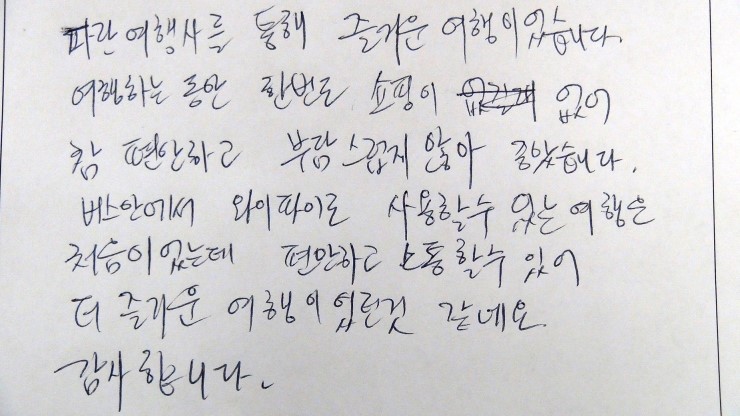 파란여행사를 통해 즐거운 여행이었습니다.
여행하는 동안 한번도 쇼핑이 없어
참 편안하고 부담스럽지 않아 좋았습니다.
버스안에서 와이파이도 사용할수 있는 여행은
처음이었는데 편안하고 소통할수 있어
더 즐거운 여행이었던것 같네요.
감사합니다.